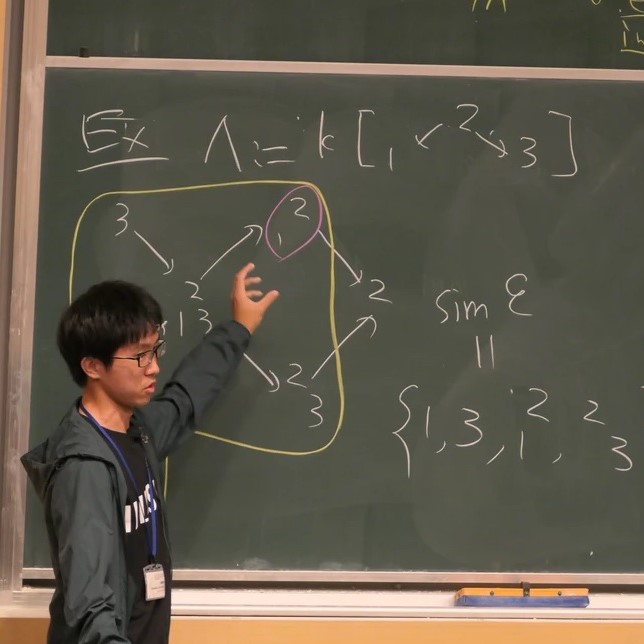 Ex Λ := k [ 1 ↙ 2 ↘ 3 ]
3 2 1
2 1 3 2
2 3
sim ℰ
||
{ 1, 3, 2 1, 2 3